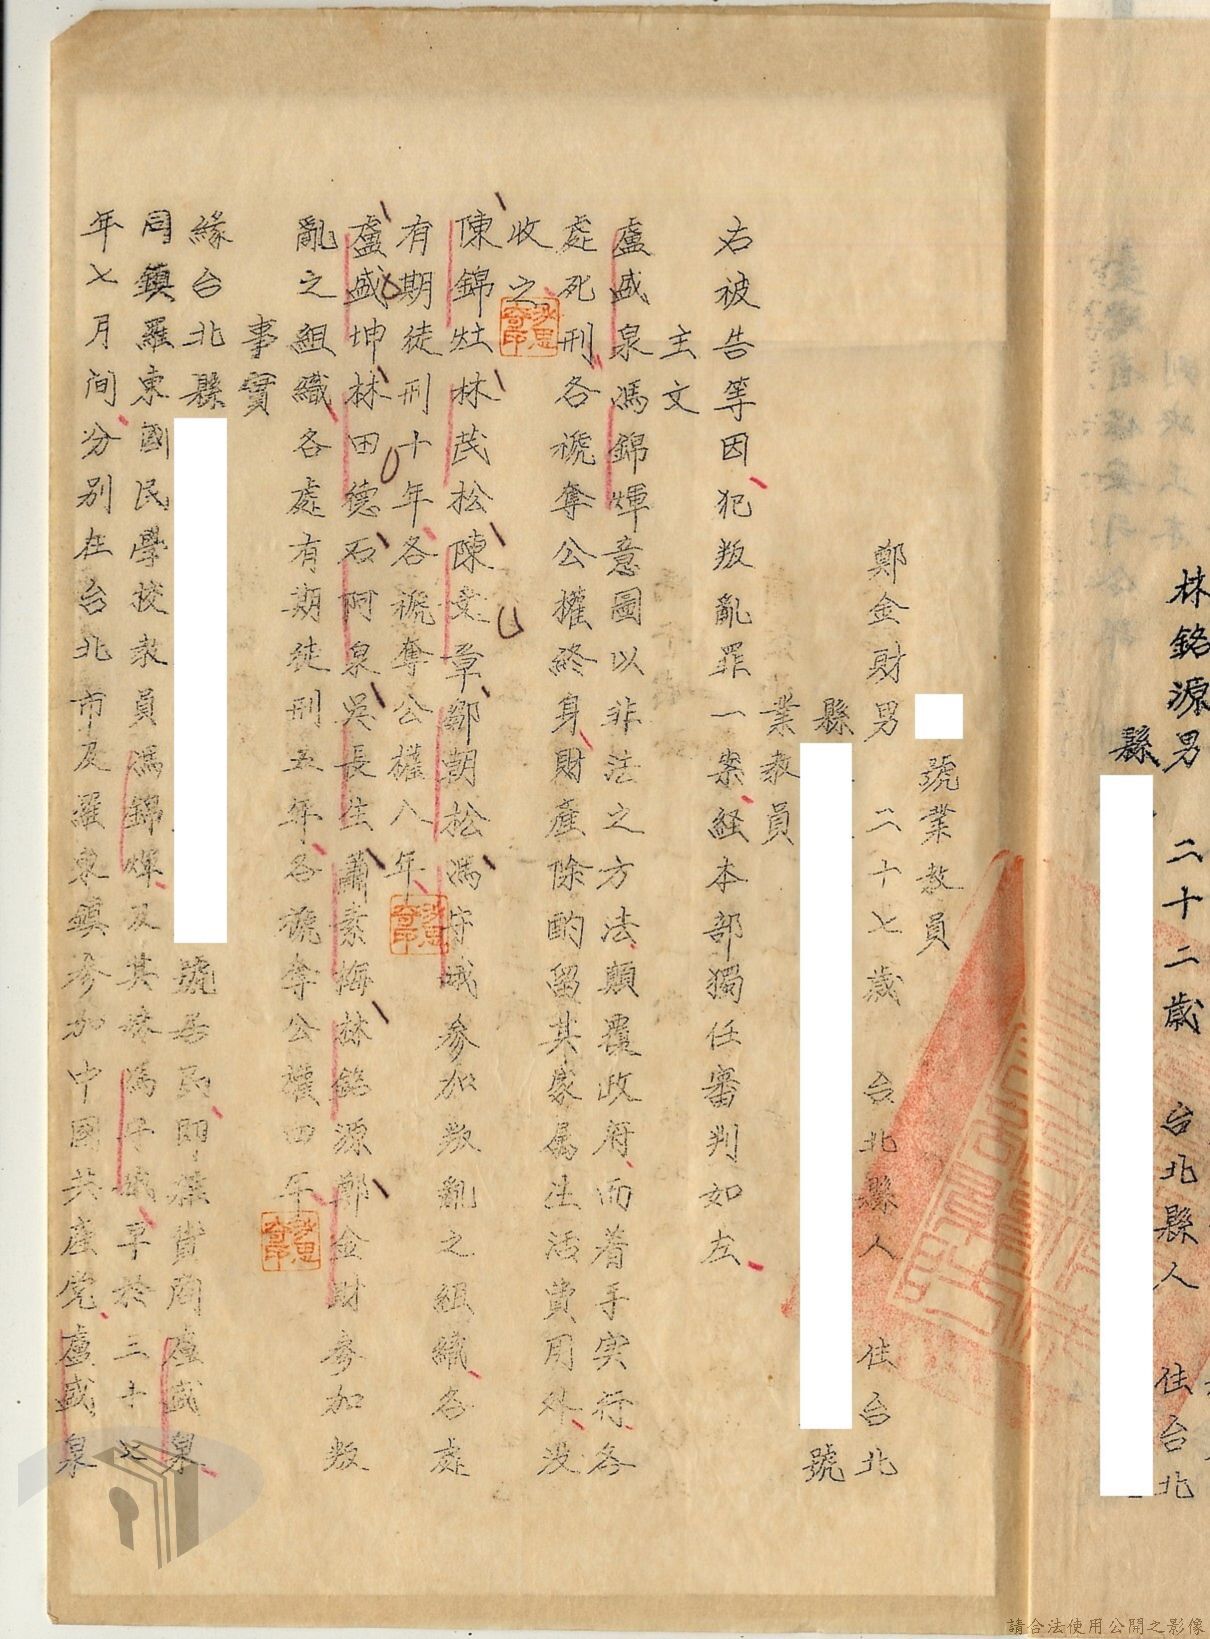 林銘源男 二十二歲 台北縣人 住台北
縣
號業教員
鄭金財男 二十七歲 台北縣人 住台北
縣 號
業教員
右被告等因犯叛亂罪一案経本部獨任審判如左
主文
盧盛泉馮錦煇意圖以非法之方法顛覆政府而着手实行各
處死刑各禠奪公權終身財產除酌留其家屬生活費用外没
收之
陳錦灶林茂松陳文章鄒朝松馮守娥參加叛亂之組織各處
有期徒刑十年各禠奪公權八年
盧盛坤林田德石阿泉吳長生蕭素梅林銘源鄭金財參加叛
亂之組織各處有期徒刑五年各禠奪公權四年
事實
緣台北縣 號 即 商盧盛泉
同鎮羅東國民學校教員馮錦煇及其妹馮守娥早於三十七
年七月间分别在台北市及羅東鎮參加中國共產党盧盛泉
請合法使用公開之影像